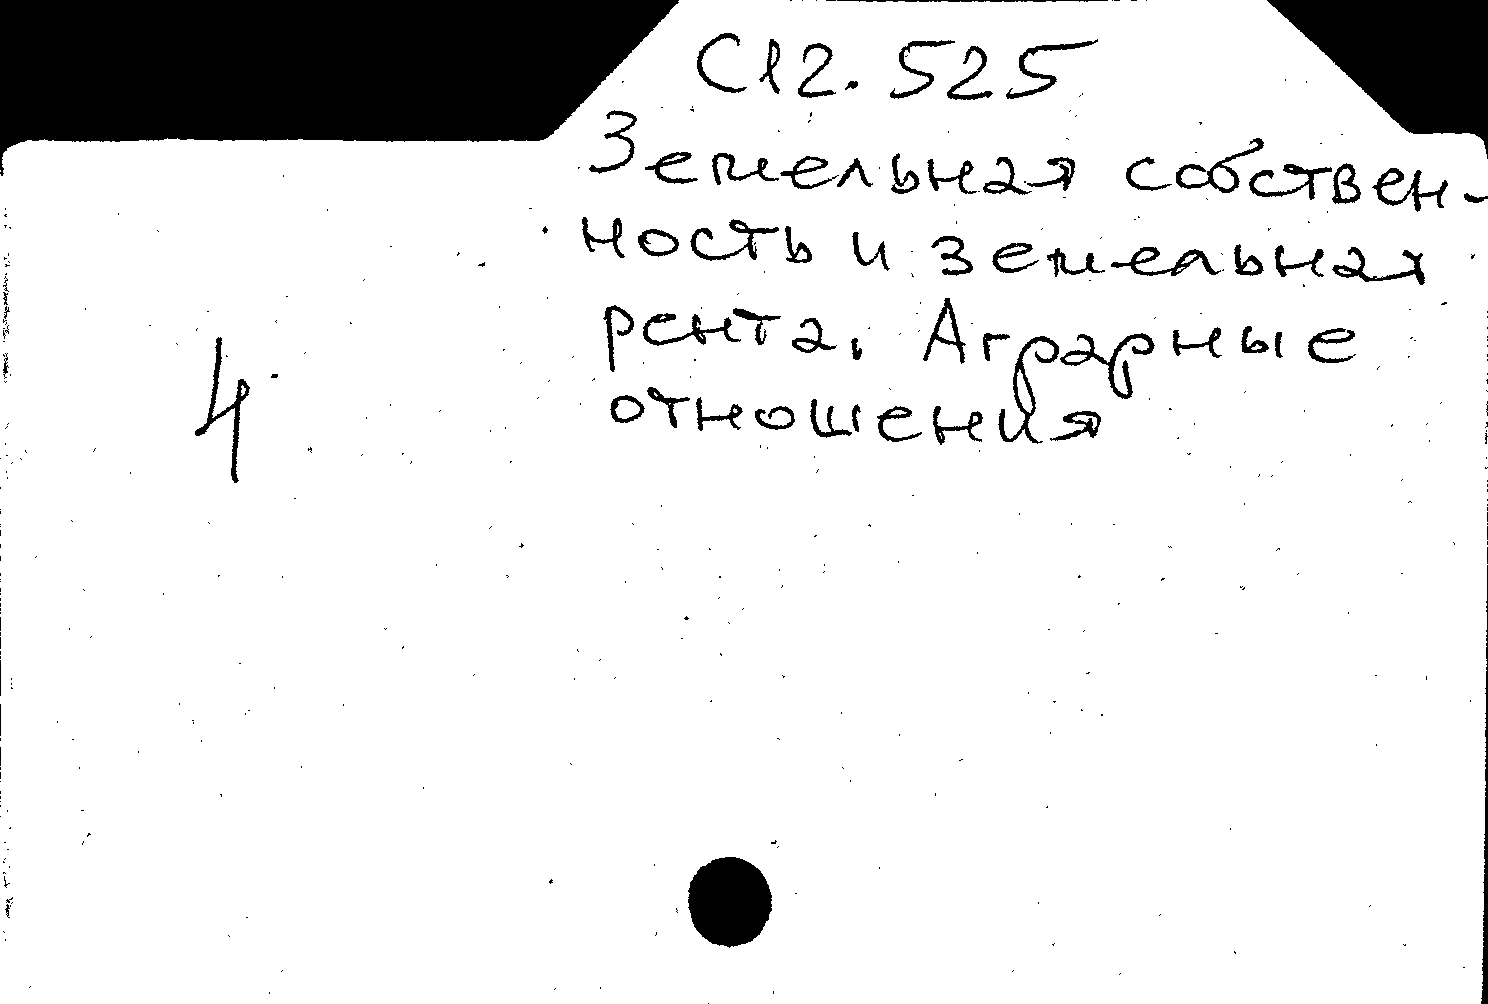 С12.525
Земельная собствен-
ность и земельная
рента. Аграрные
отношения
4